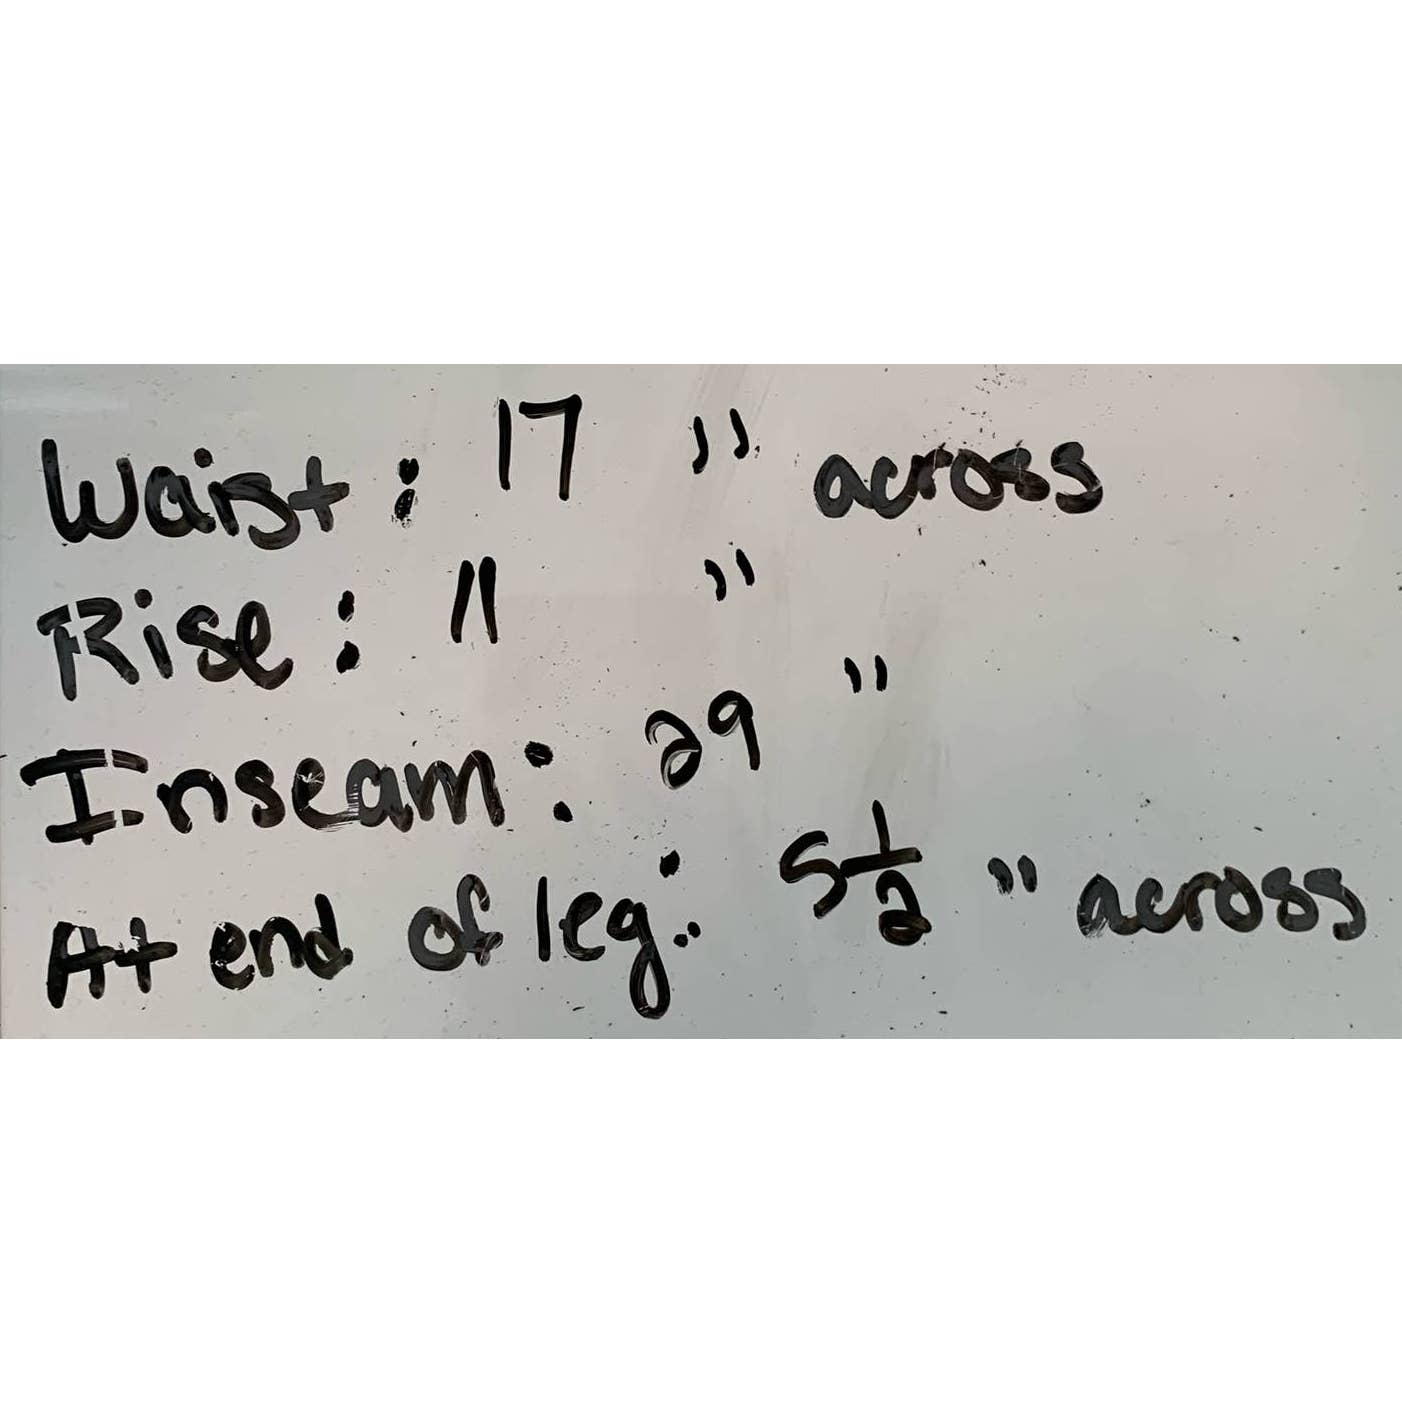 Waist: 17 " across
Rise: 11 "
Inseam: 29 "
At end of leg: 5 1/2 " across